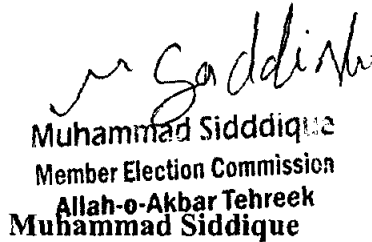 Muhammad Sidddique
Member Election Commission
Allah-o-Akbar Tehreek
Muhammad Siddique